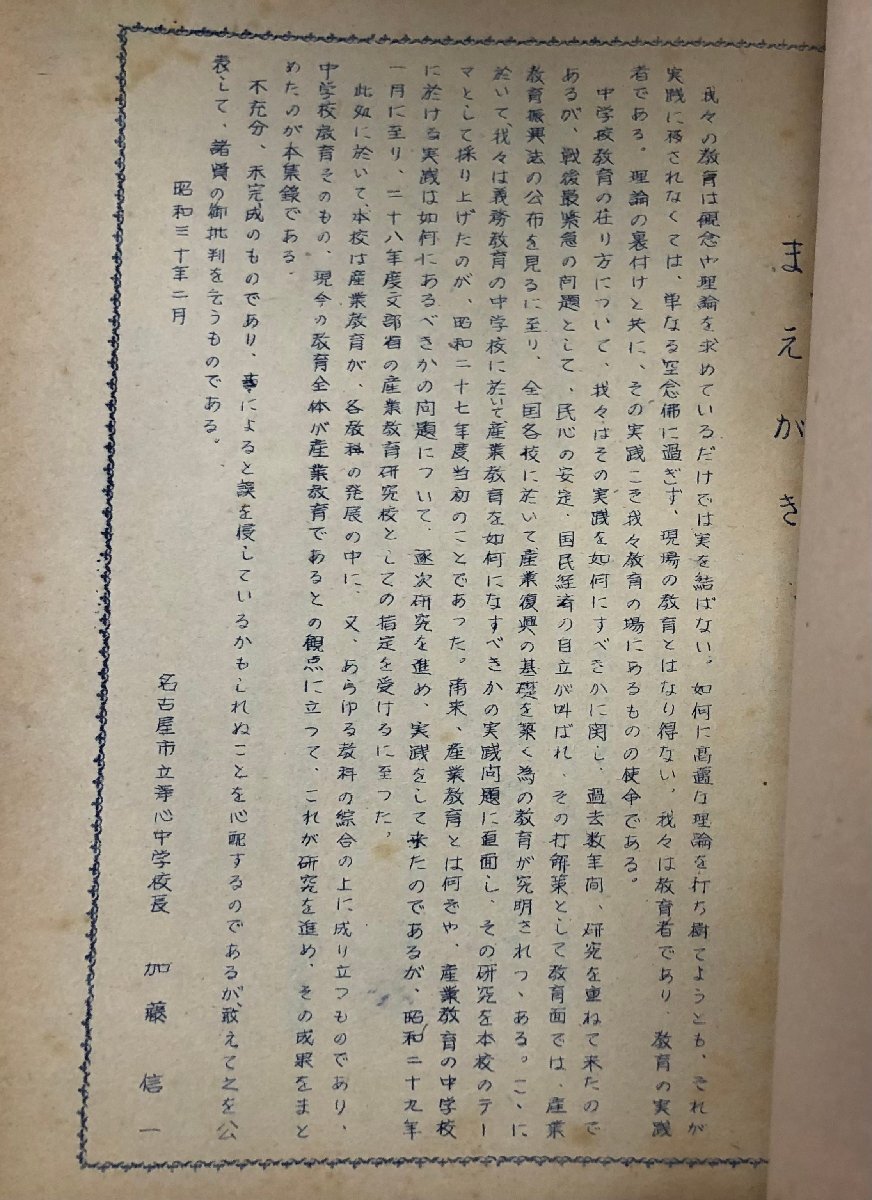 まえがき
我々の教育は観念や理論を求めているだけでは実を結ばない。如何に高邁な理論を打ち樹てようとも、それが
実践に移されなくては、単なる空念佛に過ぎず、現場の教育とはなり得ない。我々は教育者であり、教育の実践
者である。理論の裏付けと共に、その実践こそ我々教育の場にあるものの使命である。
中学校教育の在り方について、我々はその実践を如何にすべきかに関し、過去数年間、研究を重ねて来たので
あるが、戦後最緊急の問題として、民心の安定、国民経済の自立が叫ばれ、その打解策として教育面では、産業
教育振興法の公布を見るに至り、全国各校に於いて産業復興の基礎を築く為の教育が究明されつゝある。こゝに
於いて、我々は義務教育の中学校に於いて産業教育を如何になすべきかの実践問題に直面し、その研究を本校のテー
マとして採り上げたのが、昭和二十七年度当初のことであった。爾来、産業教育とは何ぞや、産業教育の中学校
に於ける実践は如何にあるべきかの問題について、逐次研究を進め、実践をして来たのであるが、昭和二十九年
一月に至り、二十八年度文部省の産業教育研究校としての指定を受けるに至つた。
此処に於いて、本校は産業教育が、各教科の発展の中に、又、あらゆる教科の綜合の上に成り立つものであり、
中学校教育そのもの、現今の教育全体が産業教育であるとの観点に立つて、これが研究を進め、その成果をまと
めたのが本集録である。
不充分、未完成のものであり、事によると誤を侵しているかもしれぬことを心配するのであるが、敢えて之を公
表して、諸賢の御批判を乞うものである。
昭和三十年二月
名古屋市立浄心中学校長 加藤信一